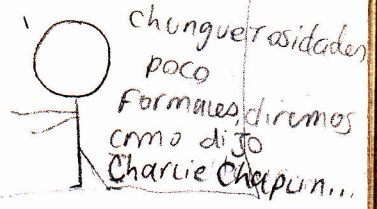 chunguerosidades
poco
formales, diremos
cmo dijo
Charlie Chaplin...